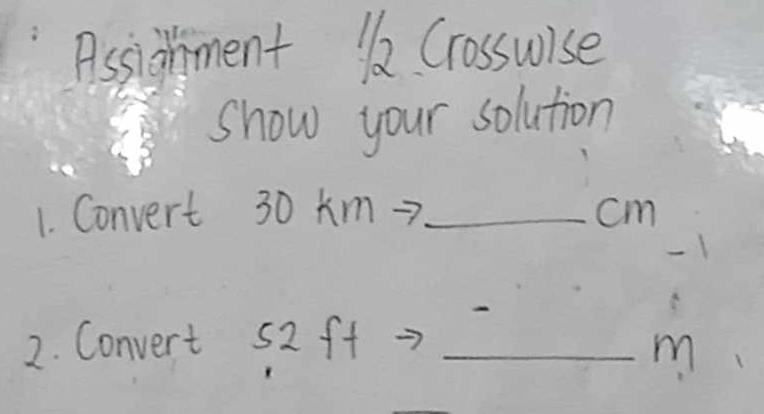 Assignment 1/2 Crosswise
Show your solution
1. Convert 30 km → ______ cm
2. Convert 52 ft → ______ m